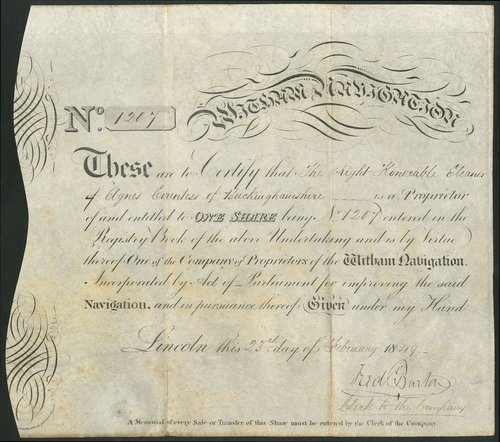 WITHAM NAVIGATION
No. 1207
These are to Certify that The Right Honorable Eleanor
of Agnes Countess of Buckinghamshire is a Proprietor
of and entitled to ONE SHARE being No. 1207 entered in the
Registry Book of the above Undertaking and is by Virtue
thereof One of the Company of Proprietors of the Witham Navigation.
Incorporated by Act of Parliament for improving the said
Navigation, and in pursuance thereof Given under my Hand
Lincoln this 23rd day of February 1849
Fred Burton
Clerk to the Company
A Memorial of every Sale or Transfer of this Share must be entered by the Clerk of the Company.